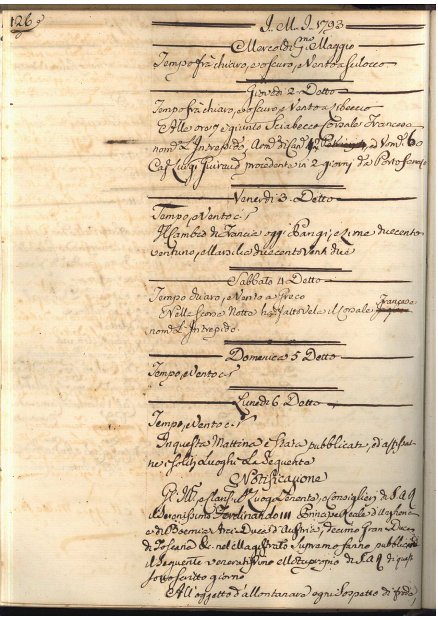 126
I. M. I. 1793
Mercoledì P.mo Maggio
Tempo frà chiaro, e oscuro, e Vento a Scilocco
Giovedì 2. Detto
Tempo frà chiaro, e oscuro, e Vento a Libeccio
Alle ore 7 è giunto Sciabecco Corsale Francese
nom.o L'Intrepido, Arm. di Can. 4 ed Vom. 60
Cap. Luigi Guiraud procedente in 2 giorni da Porto
Venerdì 3. Detto
Tempo, e Vento c. s.
Il Cambio di Francia oggi Parigi, e Lione duecento
ventuno, e Marsilia duecento vent due
Sabbato 4 Detto
Tempo chiaro, e Vento a Greco
Nella scorsa Notte hà fatto Vela il Corsale Francese
nom.o L'Intrepido.
Domenica 5 Detto
Tempo, e Vento c. s.
Lunedì 6 Detto
Tempo, e Vento c. s.
In questa Mattina è stata pubblicata, ed affissa
ne i soliti Luoghi La Seguente
Notificazione
Gl' Ill.mi, e Clariss. Luogo Tenente, e Consiglieri di S. A. R.
il Serenissimo Ferdinando III Principe Reale d'Ungheria
e di Boemia Arci-Duca d'Austria, decimo Gran Duca
di Toscana &c. nel Magistrato Supremo fanno pubblicare
il seguente veneratissimo Motuproprio di S. A. R. di questo
sottoscritto giorno
All'oggetto d'allontanare ogni sospetto di frode,